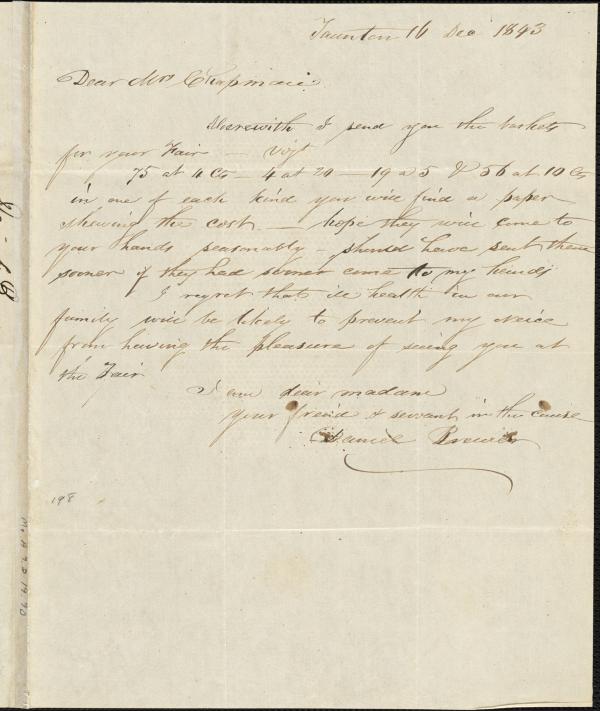 Taunton 16 Dec 1843
Dear Mrs Chapman
Herewith I send you the baskets
for your Fair — vizt
75 at 4 Cts — 4 at 20 — 19 a 5 & 56 at 10 Cts
in one of each kind you will find a paper
shewing the cost — hope they will come to
your hands seasonably — should have sent them
sooner if they had sooner come to my hands
I regret that ill health in our
family will be likely to prevent my neice
from having the pleasure of seeing you at
the Fair
I am dear madam
your freind & servant in the cause
Daniel Brewer
198